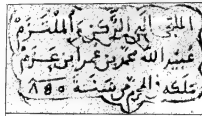 الملتجئ الى الركن و الملتزم
عبد الله محمد بن عمر ابن عزم
ملكه المحرم من سنة ٨٥٥